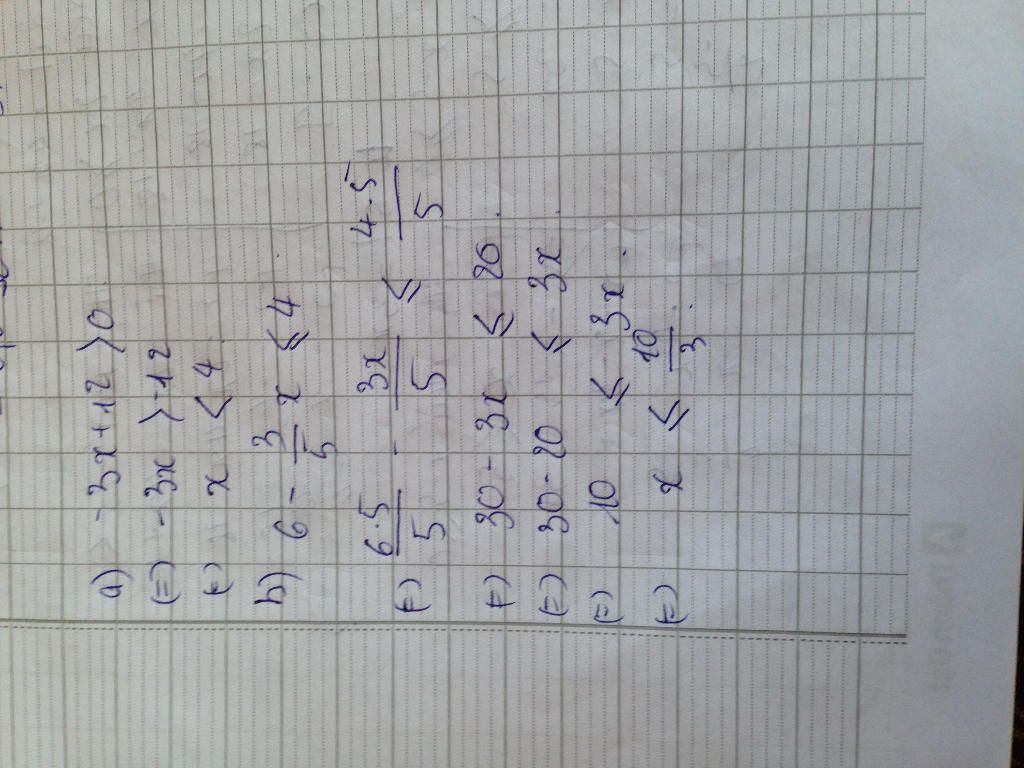 a) -3x + 12 > 0
(=) -3x > -12
(=) x < 4
b) 6 - 3/5 x ≤ 4
(=) 6.5/5 - 3x/5 ≤ 4.5/5
(=) 30 - 3x ≤ 20.
(=) 30 - 20 ≤ 3x.
(=) 10 ≤ 3x.
(=) x ≤ 10/3.